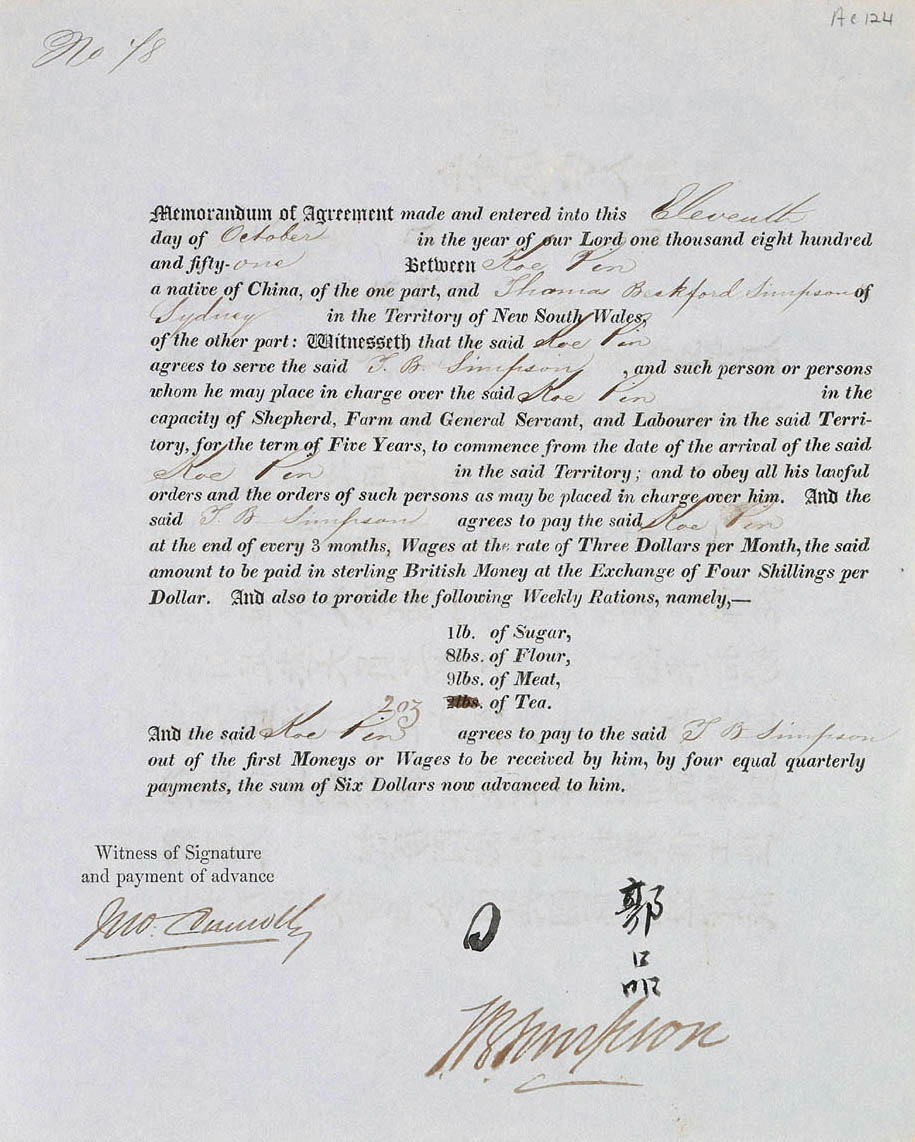 Ac 124
No 78
Memorandum of Agreement made and entered into this Eleventh
day of October in the year of our Lord one thousand eight hundred
and fifty-one Between Koe Pin
a native of China, of the one part, and Thomas Beckford Simpson of
Sydney in the Territory of New South Wales,
of the other part: Witnesseth that the said Koe Pin
agrees to serve the said T. B. Simpson, and such person or persons
whom he may place in charge over the said Koe Pin in the
capacity of Shepherd, Farm and General Servant, and Labourer in the said Terri-
tory, for the term of Five Years, to commence from the date of the arrival of the said
Koe Pin in the said Territory; and to obey all his lawful
orders and the orders of such persons as may be placed in charge over him. And the
said T. B Simpson agrees to pay the said Koe Pin
at the end of every 3 months, Wages at the rate of Three Dollars per Month, the said
amount to be paid in sterling British Money at the Exchange of Four Shillings per
Dollar. And also to provide the following Weekly Rations, namely,—
1lb. of Sugar,
8lbs. of Flour,
9lbs. of Meat,
2oz 2lbs. of Tea.
And the said Koe Pin agrees to pay to the said T B Simpson
out of the first Moneys or Wages to be received by him, by four equal quarterly
payments, the sum of Six Dollars now advanced to him.
Witness of Signature
and payment of advance
Jno. Connolly
郭品
T. B. Simpson